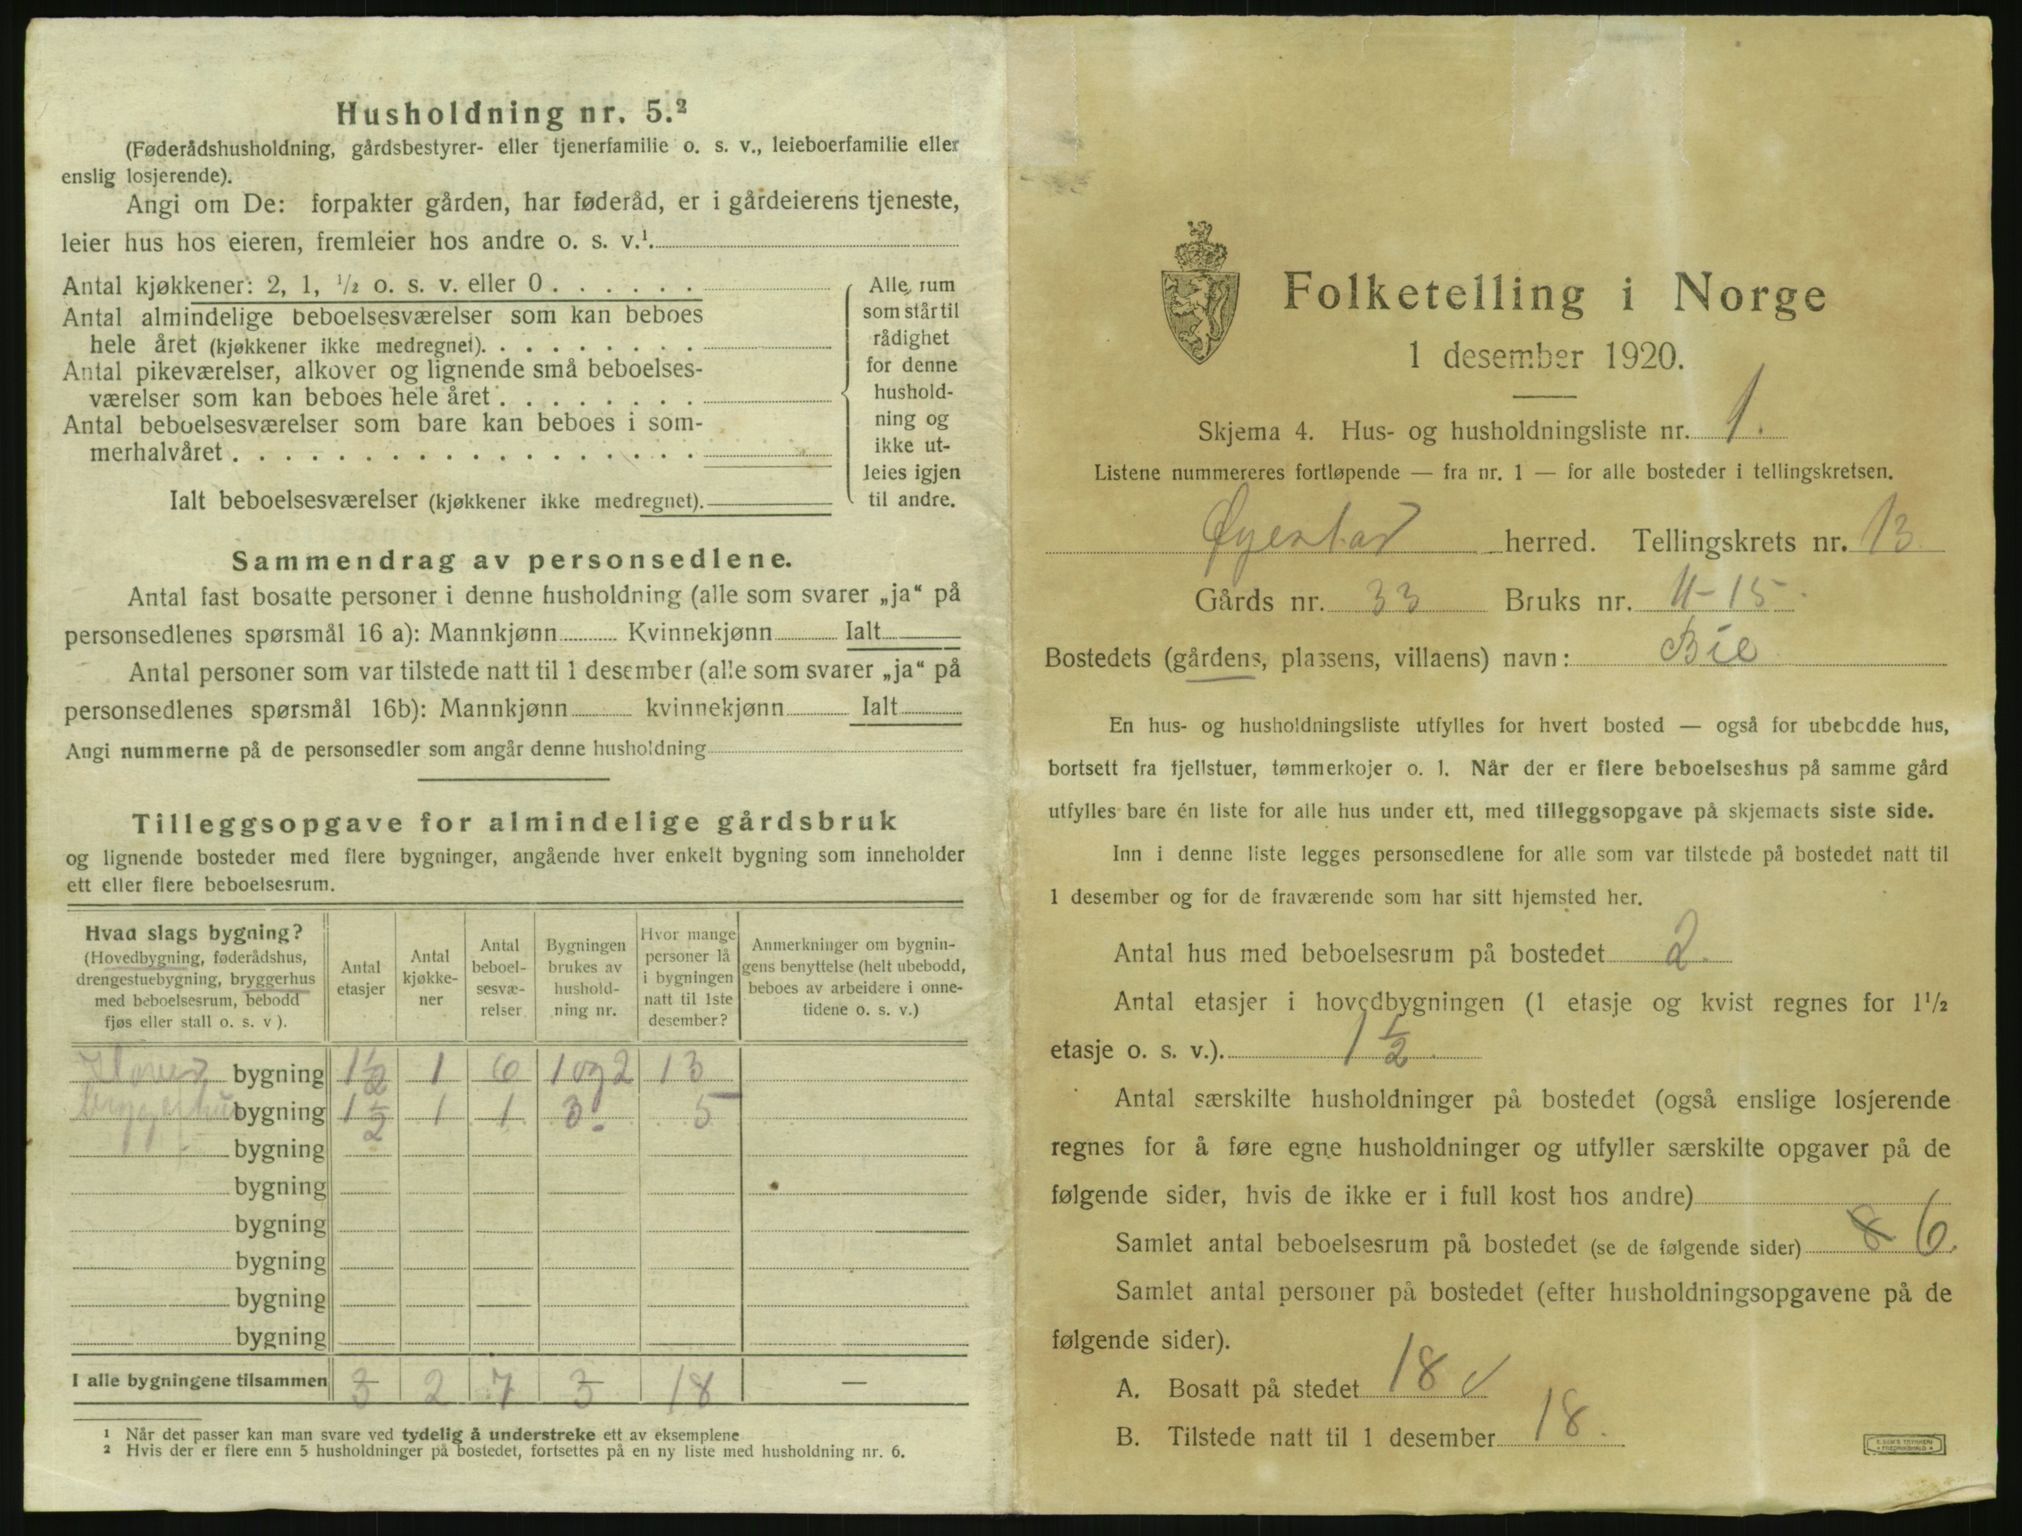 Husholdning nr. 5.²
(Føderådshusholdning, gårdsbestyrer- eller tjenerfamilie o. s. v., leieboerfamilie eller
enslig losjerende).
Angi om De: forpakter gården, har føderåd, er i gårdeierens tjeneste,
leier hus hos eieren, fremleier hos andre o. s. v.¹.
Antal kjøkkener: 2, 1, ½ o. s. v. eller 0 . . . . . .
Antal almindelige beboelsesværelser som kan beboes
hele året (kjøkkener ikke medregnet). . . . . . . . .
Antal pikeværelser, alkover og lignende små beboelses-
værelser som kan beboes hele året . . . . . . . .
Antal beboelsesværelser som bare kan beboes i som-
merhalvåret . . . . . . . . . . . . . . . . . .
Ialt beboelsesværelser (kjøkkener ikke medregnet).
Alle rum
som står til
rådighet
for denne
hushold-
ning og
ikke ut-
leies igjen
til andre.
Sammendrag av personsedlene.
Antal fast bosatte personer i denne husholdning (alle som svarer „ja“ på
personsedlenes spørsmål 16 a): Mannkjønn Kvinnekjønn Ialt
Antal personer som var tilstede natt til 1 desember (alle som svarer „ja“ på
personsedlenes spørsmål 16b): Mannkjønn kvinnekjønn Ialt
Angi nummerne på de personsedler som angår denne husholdning
Tilleggsopgave for almindelige gårdsbruk
og lignende bosteder med flere bygninger, angående hver enkelt bygning som inneholder
ett eller flere beboelsesrum.
Hvad slags bygning?
(Hovedbygning, føderådshus,
drengestuebygning, bryggerhus
med beboelsesrum, bebodd
fjøs eller stall o. s. v ).
Antal
etasjer
Antal
kjøkke-
ner
Antal
beboel-
sesvæ-
relser
Bygningen
brukes av
hushold-
ning nr.
Hvor mange
personer lå
i bygningen
natt til 1ste
desember?
Anmerkninger om bygnin-
gens benyttelse (helt ubebodd,
beboes av arbeidere i onne-
tidene o. s. v.)
bygning 1½ 1 6 1 og 2 13
bryggerhus bygning 1½ 1 1 3. 5
bygning
bygning
bygning
bygning
bygning
bygning
I alle bygningene tilsammen 3 2 7 3 18 —
¹ Når det passer kan man svare ved tydelig å understreke ett av eksemplene
² Hvis der er flere enn 5 husholdninger på bostedet, fortsettes på en ny liste med husholdning nr. 6.
Folketelling i Norge
1 desember 1920.
Skjema 4. Hus- og husholdningsliste nr. 1.
Listene nummereres fortløpende — fra nr. 1 — for alle bosteder i tellingskretsen.
Øyestad herred. Tellingskrets nr. 13.
Gårds nr. 33 Bruks nr. 11-15.
Bostedets (gårdens, plassens, villaens) navn: Bie
En hus- og husholdningsliste utfylles for hvert bosted — også for ubebodde hus,
bortsett fra fjellstuer, tømmerkojer o. l. Når der er flere beboelseshus på samme gård
utfylles bare én liste for alle hus under ett, med tilleggsopgave på skjemaets siste side.
Inn i denne liste legges personsedlene for alle som var tilstede på bostedet natt til
1 desember og for de fraværende som har sitt hjemsted her.
Antal hus med beboelsesrum på bostedet 2.
Antal etasjer i hovedbygningen (1 etasje og kvist regnes for 1½
etasje o. s. v.). 1½
Antal særskilte husholdninger på bostedet (også enslige losjerende
regnes for å føre egne husholdninger og utfyller særskilte opgaver på de
følgende sider, hvis de ikke er i full kost hos andre)
Samlet antal beboelsesrum på bostedet (se de følgende sider) 8 6.
Samlet antal personer på bostedet (efter husholdningsopgavene på de
følgende sider).
A. Bosatt på stedet 18 ✓
B. Tilstede natt til 1 desember 18.